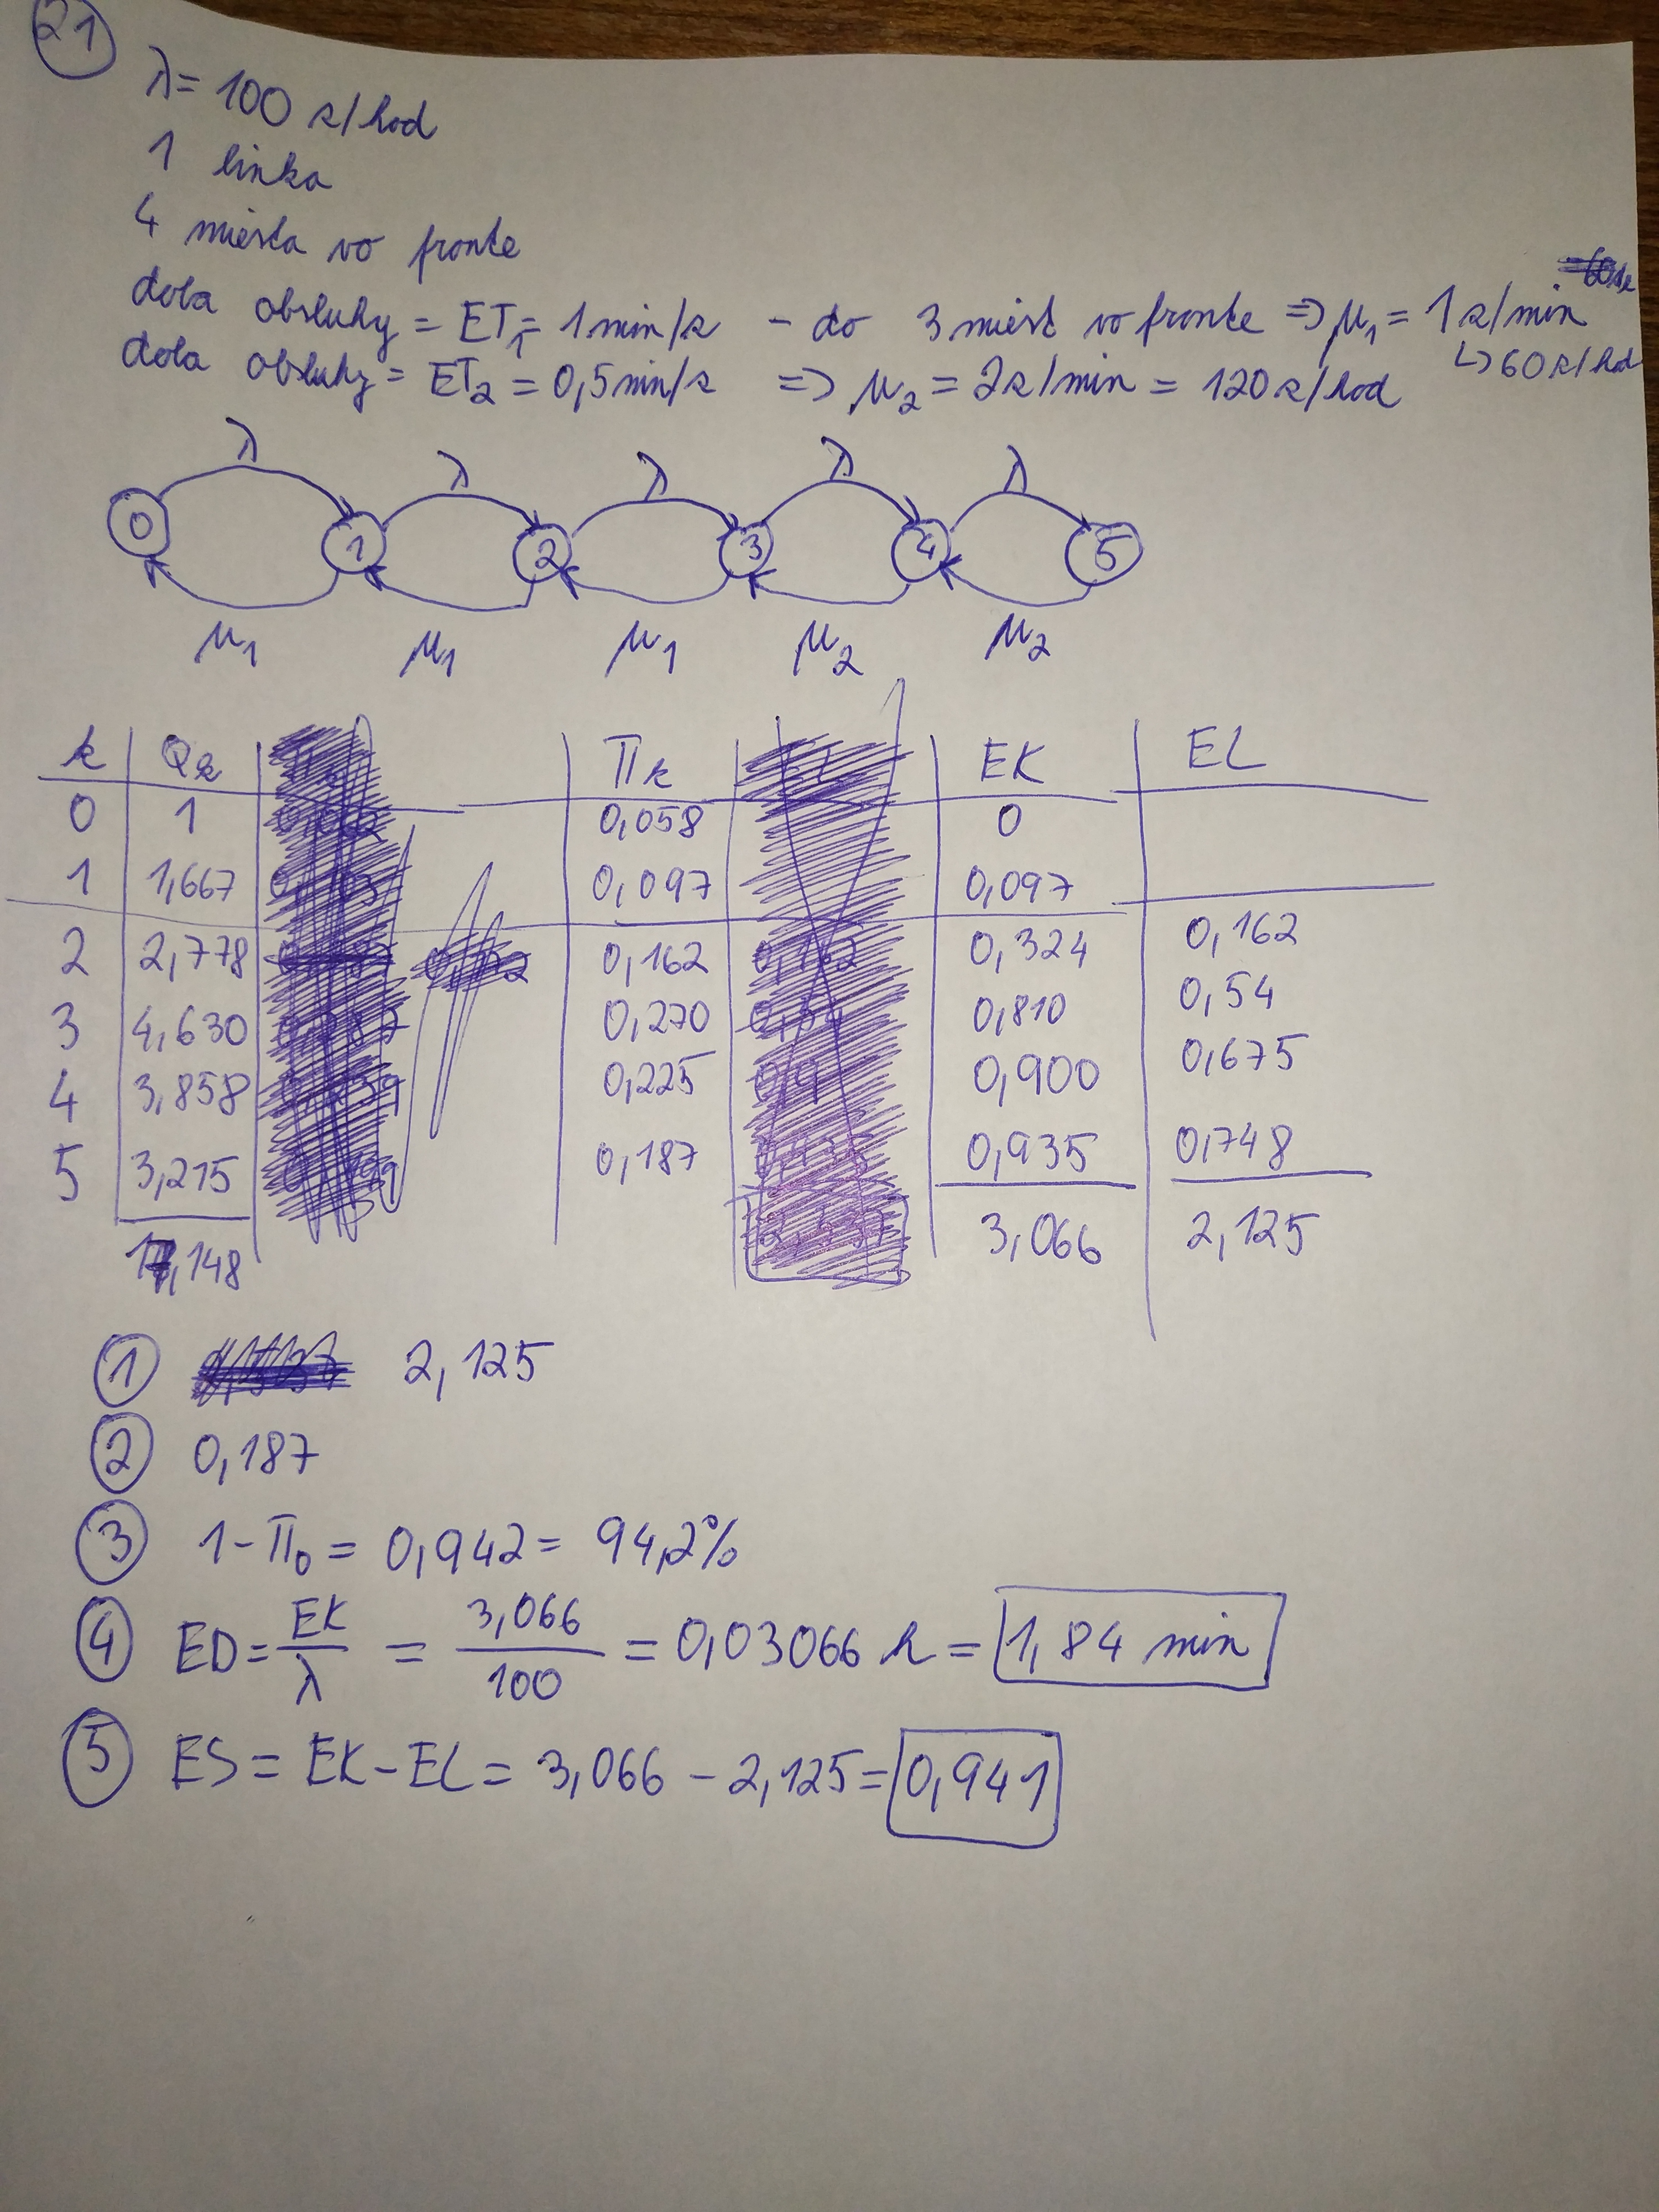 21
λ = 100 z/hod
1 linka
4 miesta vo fronte
doba obsluhy = ET₁ = 1 min/z - do 3 miest vo fronte => μ₁ = 1 z/min
↳ 60 z/hod
doba obsluhy = ET₂ = 0,5 min/z => μ₂ = 2 z/min = 120 z/hod
λ λ λ λ λ
0 1 2 3 4 5
μ₁ μ₁ μ₁ μ₂ μ₂
k Qk Πk EK EL
0 1 0,058 0
1 1,667 0,097 0,097
2 2,778 0,162 0,324 0,162
3 4,630 0,270 0,810 0,54
4 3,858 0,225 0,900 0,675
5 3,215 0,187 0,935 0,748
17,148 3,066 2,125
1 2,125
2 0,187
3 1-Π₀ = 0,942 = 94,2%
4 ED = EK/λ = 3,066/100 = 0,03066 h = 1,84 min
5 ES = EK - EL = 3,066 - 2,125 = 0,941